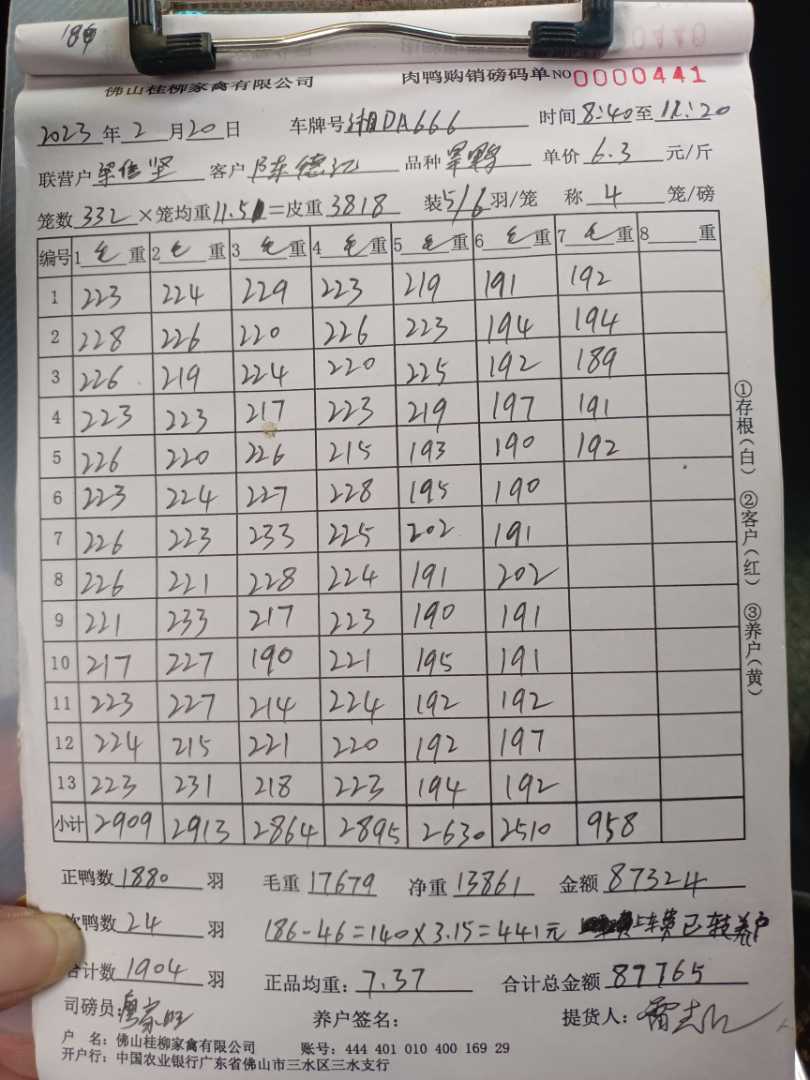 186
佛山桂柳家禽有限公司 肉鸭购销磅码单 NO 0000441
2023年2月20日 车牌号湘DA666 时间8:40至11:20
联营户梁佳坚 客户陈德江 品种旱鸭 单价6.3元/斤
笼数332×笼均重11.5=皮重3818 装5/6羽/笼 称4笼/磅
编号 1毛重 2毛重 3毛重 4毛重 5毛重 6毛重 7毛重 8重
1 223 224 229 223 219 191 192
2 228 226 220 226 223 194 194
3 226 219 224 220 225 192 189
4 223 223 217 223 219 197 191
5 226 220 226 215 193 190 192
6 223 224 227 228 195 190
7 226 223 233 225 202 191
8 226 221 228 224 191 202
9 221 233 217 223 190 191
10 217 227 190 221 195 191
11 223 227 214 224 192 192
12 224 215 221 220 192 197
13 223 231 218 223 194 192
小计 2909 2913 2864 2895 2630 2510 958
①存根(白) ②客户(红) ③养户(黄)
正鸭数1880羽 毛重17679 净重13861 金额87324
次鸭数24羽 186-46=140×3.15=441元 上车费已转养户
合计数1904羽 正品均重:7.37 合计总金额87765
司磅员: 养户签名: 提货人:
户 名:佛山桂柳家禽有限公司 账号:444 401 010 400 169 29
开户行:中国农业银行广东省佛山市三水区三水支行